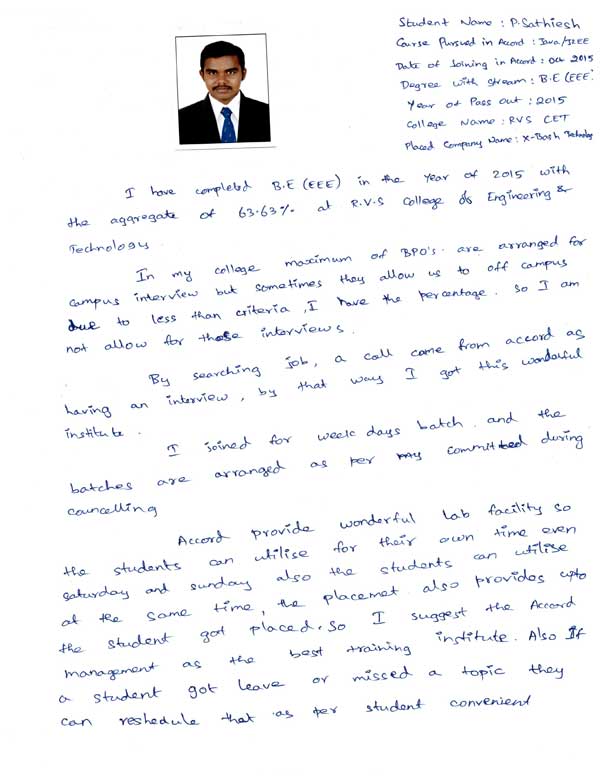 Student Name : P. Sathiesh
Course Pursued in Accord : Java/J2EE
Date of Joining in Accord : Oct 2015
Degree with Stream : B.E (EEE)
Year of Pass Out : 2015
College Name : RVS CET
Placed Company Name : X-Bosh Technology
I have completed B.E (EEE) in the Year of 2015 with
the aggregate of 63.63% at R.V.S College of Engineering &
Technology.
In my college maximum of BPO's are arranged for
campus interview but sometimes they allow us to off campus
due to less than criteria, I have the percentage. So I am
not allow for those interviews.
By searching job, a call came from accord as
having an interview, by that way I got this wonderful
institute.
I joined for week days batch and the
batches are arranged as per my committed during
councelling
Accord provide wonderful Lab facility so
the students can utilise for their own time even
saturday and sunday also the students can utilise
at the same time, the placemet also provides upto
the student got placed. So I suggest the Accord
management as the best training institute. Also If
a student got leave or missed a topic they
can reshedule that as per student convenient